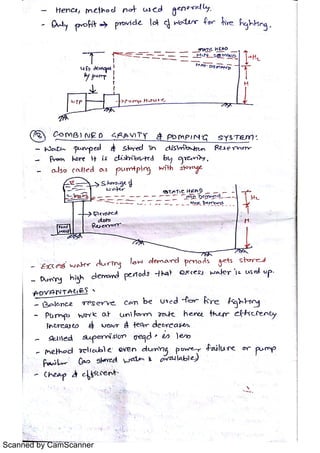 - Hence, method not used generally.
- Only profit → provide lot of water for fire fighting.
STATIC HEAD
MIN. DEMAND
MAX. DEMAND
HL
H
Lift demand
by pump
WTP
Pump House
COMBINED GRAVITY & PUMPING SYSTEM:
- Water pumped & stored in distribution Reservoir
- from here it is distributed by gravity.
- also called as pumping with storage
Storage of
water
STATIC HEAD
Min Demand
Max Demand
HL
H
Elevated
Reservoir
- Excess water during low demand periods gets stored
- During high demand periods that excess water is used up.
ADVANTAGES:
- Balance reserve can be used for fire fighting
- Pumps work at uniform rate hence their efficiency
increases & wear & tear decreases
- skilled supervision reqd. is less
- Method reliable even during power failure or pump
failure (as stored water is available)
- Cheap & efficient.
Scanned by CamScanner